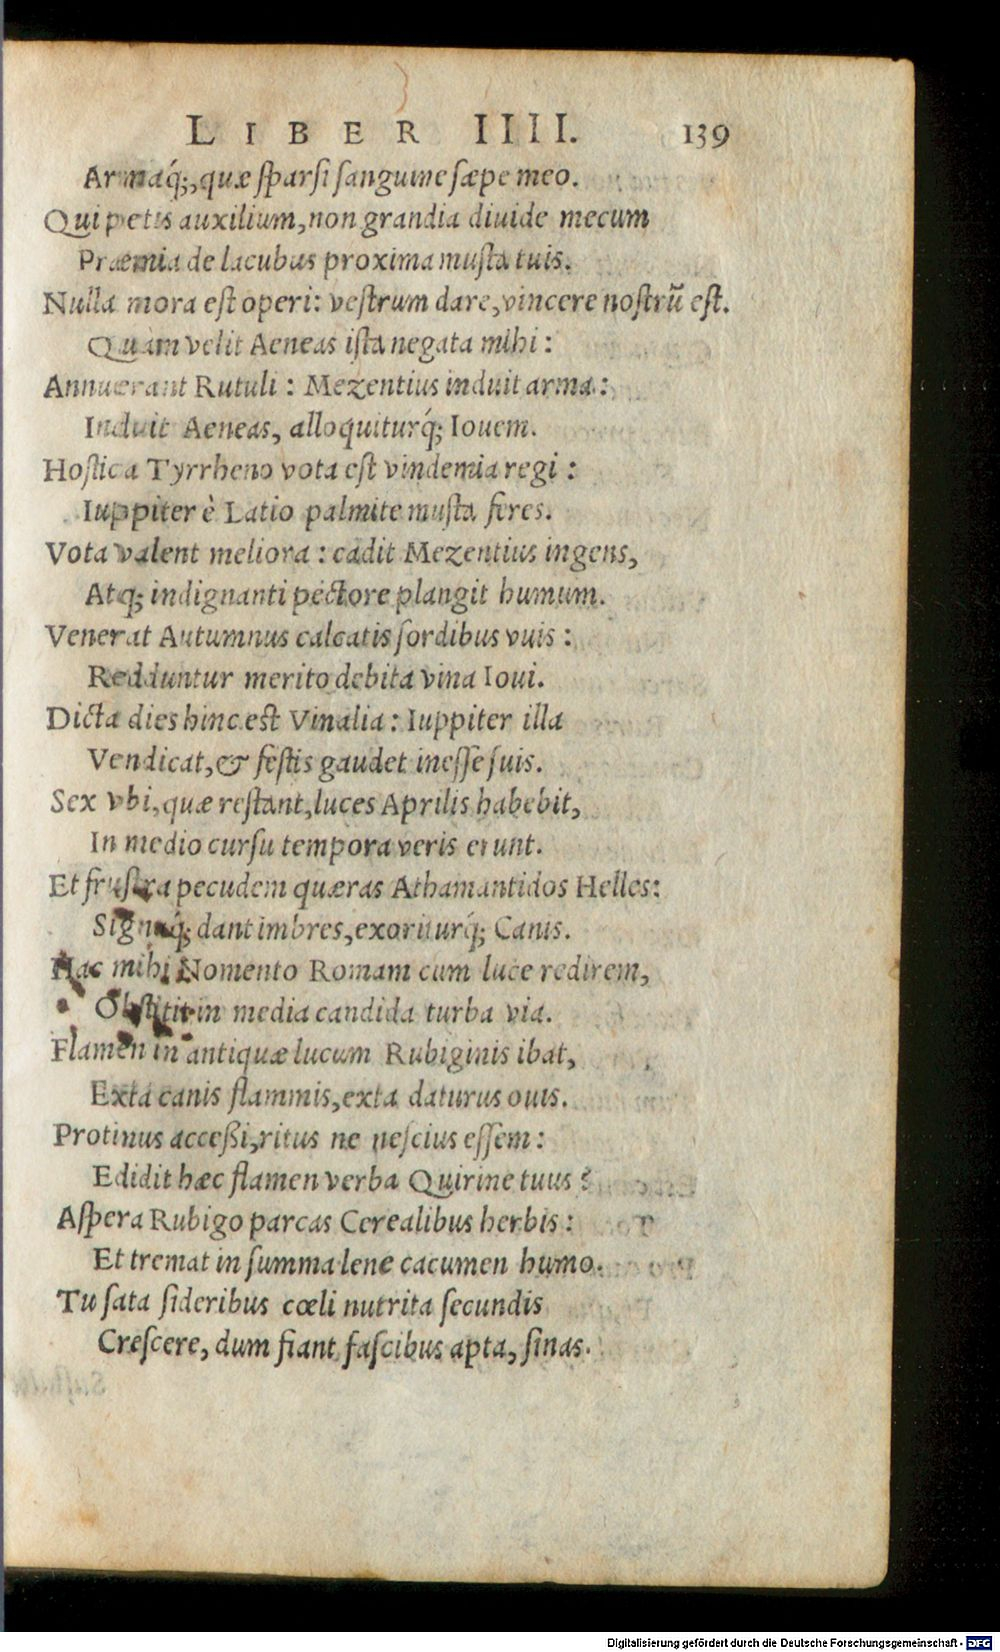 LIBER IIII. 139
Armaq́;, quæ sparsi sanguine sæpe meo.
Qui petis auxilium, non grandia diuide mecum
Præmia de lacubus proxima musta tuis.
Nulla mora est operi: vestrum dare, vincere nostrũ est.
Quàm velit Aeneas ista negata mihi:
Annuerant Rutuli: Mezentius induit arma:
Induit Aeneas, alloquiturq́; Iouem.
Hostica Tyrrheno vota est vindemia regi:
Iuppiter è Latio palmite musta feres.
Vota valent meliora: cadit Mezentius ingens,
Atq; indignanti pectore plangit humum.
Venerat Autumnus calcatis sordibus vuis:
Redduntur merito debita vina Ioui.
Dicta dies hinc est Vinalia: Iuppiter illa
Vendicat, & festis gaudet inesse suis.
Sex vbi, quæ restant, luces Aprilis habebit,
In medio cursu tempora veris erunt.
Et frustra pecudem quæras Athamantidos Helles:
Signaq́; dant imbres, exoriturq́; Canis.
Hac mihi Nomento Romam cum luce redirem,
Obstitit in media candida turba via.
Flamen in antiquæ lucum Rubiginis ibat,
Exta canis flammis, exta daturus ouis.
Protinus accessi, ritus ne nescius essem:
Edidit hæc flamen verba Quirine tuus:
Aspera Rubigo parcas Cerealibus herbis:
Et tremat in summa lene cacumen humo.
Tu sata sideribus cœli nutrita secundis
Crescere, dum fiant fascibus apta, sinas.
Digitalisierung gefördert durch die Deutsche Forschungsgemeinschaft - DFG